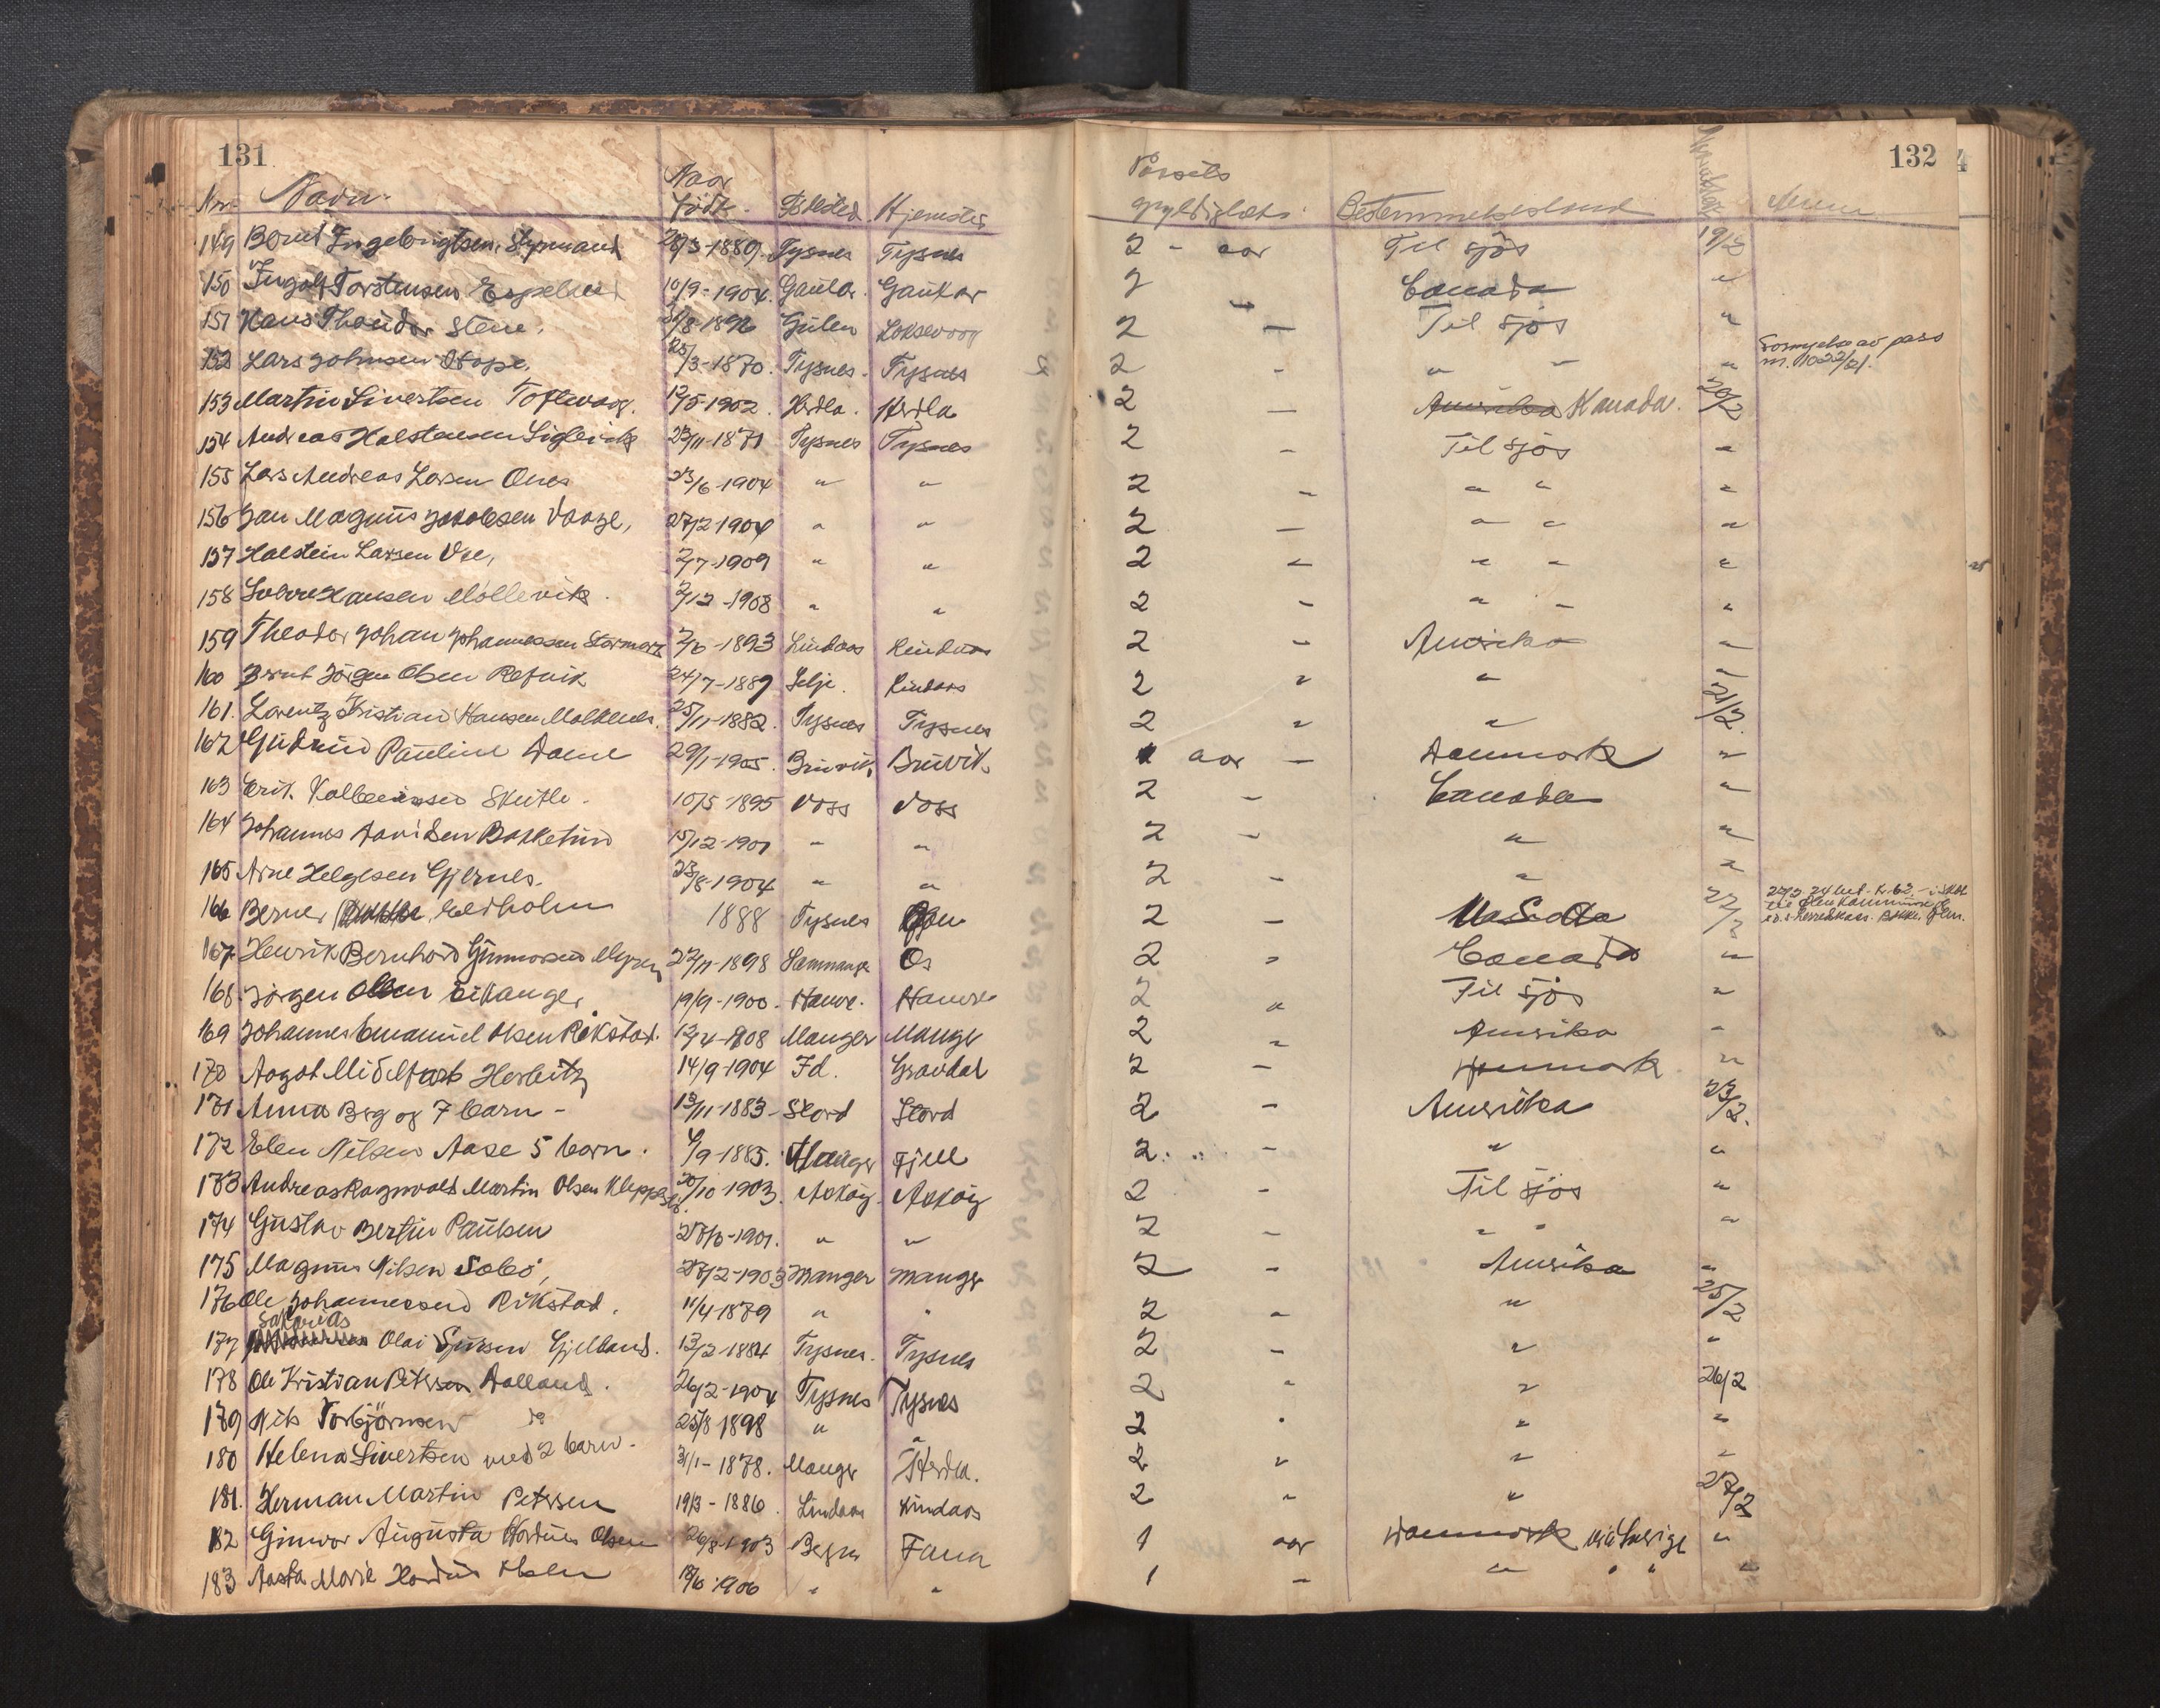 131
132
Nr. Navn. Naar født. Fødested Hjemsted Passets gyldighets. Bestemmelsesland Anm
149 Bernt Ingebrigtsen, 28/3-1889. Tysnes Tysnes 2 - aar Til sjøs 19/2
150 Ingolf Torstensen Espeland 10/9-1904. Gaular. Gaular 2 — Canada "
151 Hans Theodor Stene. /8-1896 Gulen 2 — Til sjøs "
152 Lars Johnsen Hope. 25/3-1870. Tysnes. Tysnes 2 - " - " Fornyelse av pass nr. 1022/21.
153 Martin Sivertsen Toftevaag. 12/5-1902. Herdla. Herdla 2 — Amerika Kanada. 20/2
154 Andreas Halstensen 23/11-1871 Tysnes Tysnes 2 - Til sjøs "
155 Lars Andreas Larsen Ones 23/6-1904 " " 2 - " " "
156 Jan Magnus Jakobsen Vaage, 27/2 1904 " " 2 — " " "
157 Halstein Larsen Vee, 2/7-1909 " " 2 - " - "
158 Sverre Hansen Møllevik. 2/12-1908 " " 2 - " - "
159 Theodor Johan Johannessen 2/6-1893 Lindaas Lindaas 2 - Amerika "
160 Bernt Jørgen Olsen Refvik 24/7-1889 Selje. Lindaas 2 " " "
161. Lorentz Kristian Hansen 25/11-1882. Tysnes Tysnes 2 " " 21/2.
162 Gudrun Pauline Dame 29/1-1905. Bruvik, Bruvik. 1 aar — Danmark "
163 Erik Kolbeinsen Skutle. 10/5-1895 Voss Voss 2 - Canada "
164 Johannes Davidsen Bakketun 15/12-1901 " " 2 - " "
165 Arne Helgesen Gjernes. 23/8-1904 " " 2 - " "
166 Berner Eidholm 1888 Tysnes 2 - 22/2
167. Henrik Bernhard Gunnarsen Myren 22/11-1898 Samnanger Os 2 " Canada "
168 Jørgen Olsen Eikanger 19/9-1900. Hamre. Hamre 2 " Til sjøs "
169 Johannes Emanuel Olsen Rikstad. 12/4-1908 Manger Manger 2 " Amerika "
170 Aagot Midelfart Herbitz 14/9-1904 Gravdal 2 - Danmark "
171 Anna Berg og 7 barn - 13/11-1883- Stord Stord 2 - Amerika 23/2.
172 Elen Nilsen Aase 5 barn. /9-1885. Manger Fjell 2. - " "
173 Andreas Ragnvald Martin Olsen 30/10-1903. Askøy. Askøy 2 - Til sjøs "
174 Gustav Bertin Paulsen -1901. " " 2 - " " "
175 Magnus Nilsen Solbø, 27/2-1903 Manger Manger 2 - Amerika "
176 Ole Johannessen Rikstad. 11/4-1879 " " 2 - " 25/2
Sakarias
177 Olai Sjursen Gjelland. 13/2-1884 Tysnes. Tysnes 2 - " "
178 Ole Kristian Petersen Dalland. 26/2-1904 Tysnes Tysnes 2 " " 26/2
179 Nils Torbjørnsen do 25/8 1898 " " 2 " " "
180 Helena Sivertsen med 2 barn. 31/1-1878. Manger Herdla. 2 " " "
181. Herman Martin Petersen 19/3-1886. Lindaas Lindaas 2 " " 27/2
182 Gunvor Augusta Hordnes Olsen 26/8-1903 Bergen Fana 1 aar Danmark via Sverige "
183 Aasta Marie Hordnes Olsen 18/6-1906 " " 1 - " " " "